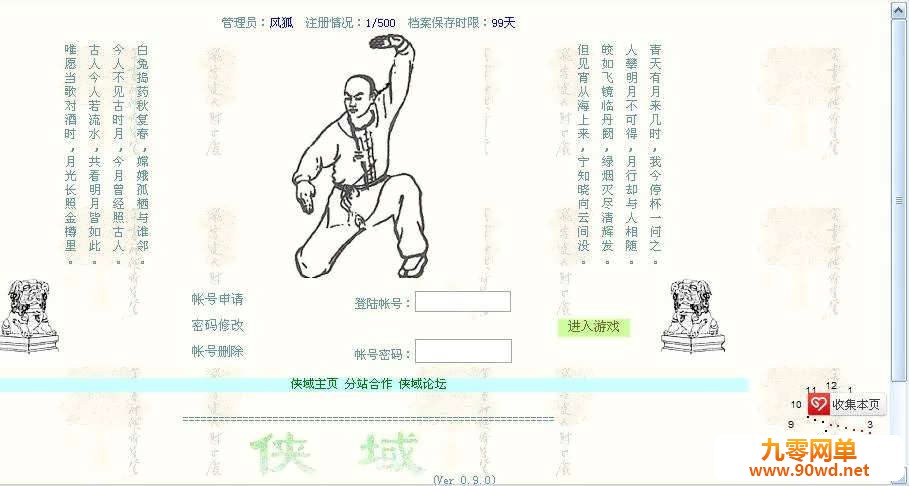 管理员：风狐 注册情况：1/500 档案保存时限：99天
青天有月来几时，我今停杯一问之。
人攀明月不可得，月行却与人相随。
皎如飞镜临丹阙，绿烟灭尽清辉发。
但见宵从海上来，宁知晓向云间没。
白兔捣药秋复春，嫦娥孤栖与谁邻。
今人不见古时月，今月曾经照古人。
古人今人若流水，共看明月皆如此。
唯愿当歌对酒时，月光长照金樽里。
帐号申请
登陆帐号：
密码修改
进入游戏
帐号删除
帐号密码：
侠域主页 分站合作 侠域论坛
侠 域
(Ver 0.9.0)
11 12 1
10
收集本页
9
3
九零网单
www.90wd.net